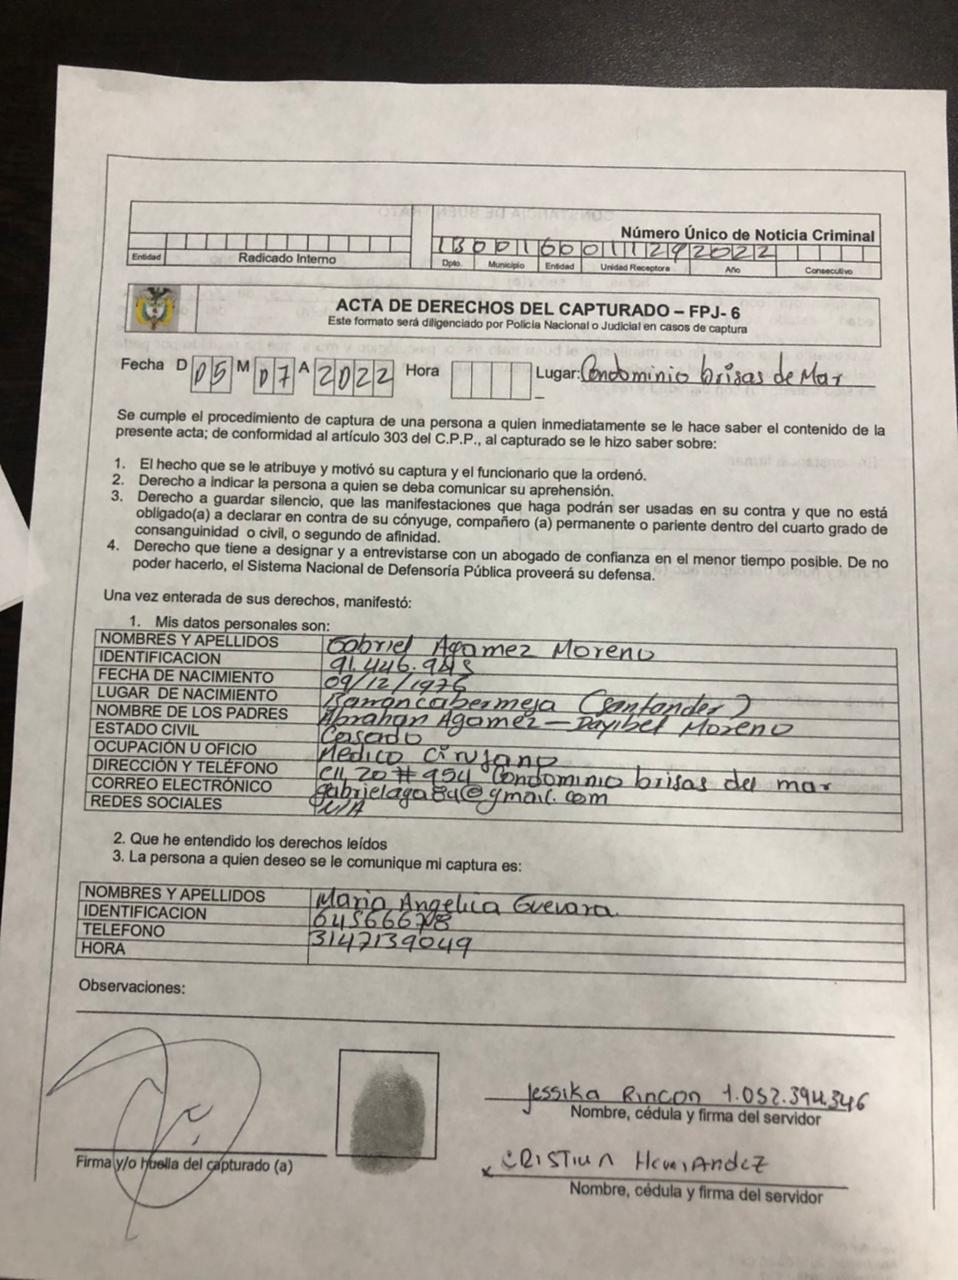 Número Único de Noticia Criminal
1300160011292022
Entidad Radicado Interno Dpto. Municipio Entidad Unidad Receptora Año Consecutivo
ACTA DE DERECHOS DEL CAPTURADO – FPJ- 6
Este formato será diligenciado por Policía Nacional o Judicial en casos de captura
Fecha D 05 M 07 A 2022 Hora Lugar: Condominio brisas de Mar
Se cumple el procedimiento de captura de una persona a quien inmediatamente se le hace saber el contenido de la
presente acta; de conformidad al artículo 303 del C.P.P., al capturado se le hizo saber sobre:
1. El hecho que se le atribuye y motivó su captura y el funcionario que la ordenó.
2. Derecho a indicar la persona a quien se deba comunicar su aprehensión.
3. Derecho a guardar silencio, que las manifestaciones que haga podrán ser usadas en su contra y que no está
obligado(a) a declarar en contra de su cónyuge, compañero (a) permanente o pariente dentro del cuarto grado de
consanguinidad o civil, o segundo de afinidad.
4. Derecho que tiene a designar y a entrevistarse con un abogado de confianza en el menor tiempo posible. De no
poder hacerlo, el Sistema Nacional de Defensoría Pública proveerá su defensa.
Una vez enterada de sus derechos, manifestó:
1. Mis datos personales son:
NOMBRES Y APELLIDOS Gabriel Agamez Moreno
IDENTIFICACION 91.446.945
FECHA DE NACIMIENTO 09/12/1975
LUGAR DE NACIMIENTO Barrancabermeja (Santander)
NOMBRE DE LOS PADRES Abrahan Agamez — Dayibel Moreno
ESTADO CIVIL Casado
OCUPACIÓN U OFICIO Medico Cirujano
DIRECCIÓN Y TELÉFONO Cll 20 # 954 Condominio brisas del mar
CORREO ELECTRÓNICO gabrielaga84@gmail.com
REDES SOCIALES N/A
2. Que he entendido los derechos leídos
3. La persona a quien deseo se le comunique mi captura es:
NOMBRES Y APELLIDOS Maria Angelica Guevara
IDENTIFICACION
TELEFONO 3147139049
HORA
Observaciones:
Jessika Rincon 1.052.394.346
Nombre, cédula y firma del servidor
Firma y/o huella del capturado (a)
CRISTIUN HernANdeZ
Nombre, cédula y firma del servidor